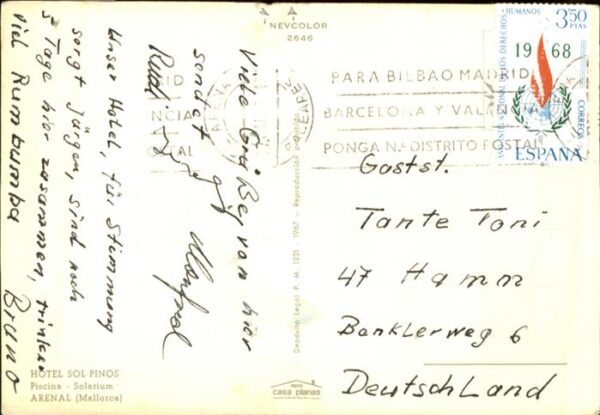 NEVCOLOR
2646
Viele Grüße von hier
sendet
Rudi
Manfred
Unser Hotel, für Stimmung
sorgt Jürgen, sind noch
5 Tage hier zusammen, trinken
viel Rumbumba
Bruno
HOTEL SOL PINOS
Piscina - Solarium
ARENAL (Mallorca)
Depósito Legal P. M. 1231 - 1967 - Reproducción prohibida
casa planas
PARA BILBAO MADRID
BARCELONA Y VALENCIA
PONGA N.º DISTRITO POSTAL
HUMANOS
3,50
PTAS
1968
CORREOS
ESPAÑA
Gastst.
Tante Toni
47 Hamm
Banklerweg 6
Deutschland